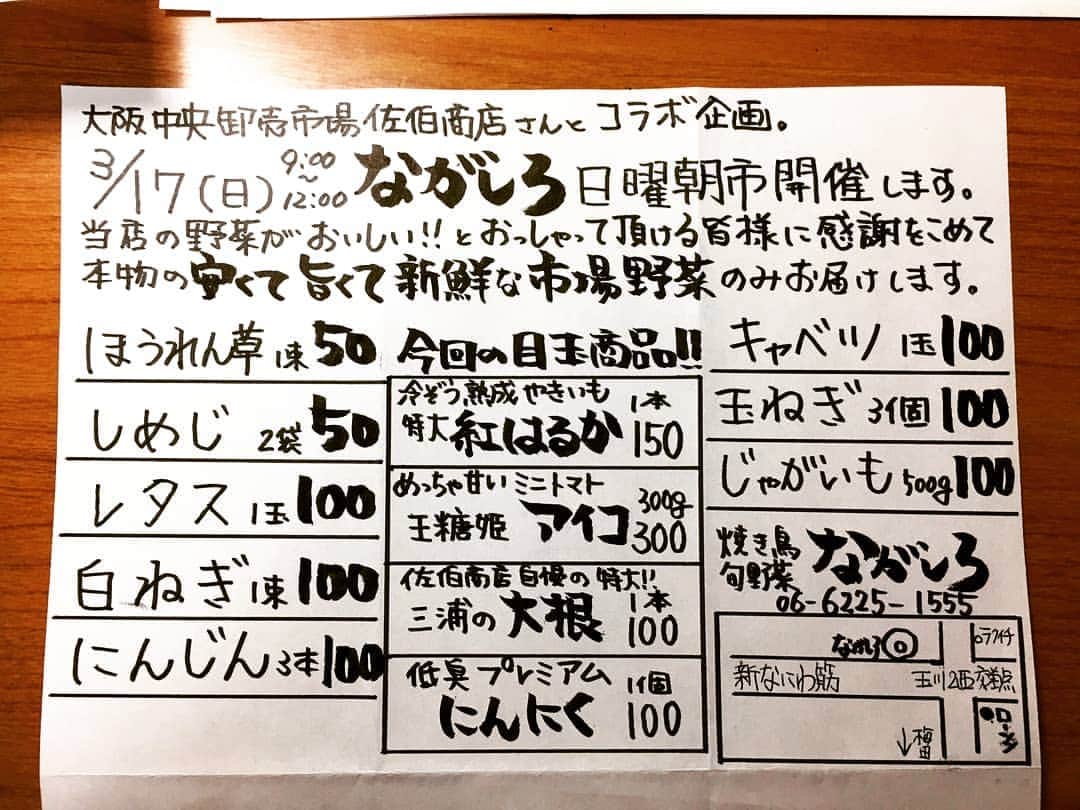 大阪中央卸売市場佐伯商店さんとコラボ企画。
3/17(日) 9:00～12:00 ながしろ 日曜朝市開催します。
当店の野菜がおいしい!!とおっしゃって頂ける皆様に感謝をこめて
本物の安くて旨くて新鮮な市場野菜のみお届けします。
ほうれん草 1束 50
しめじ 2袋 50
レタス 1玉 100
白ねぎ 1束 100
にんじん 3本 100
今回の目玉商品!!
冷ぞう熟成 やきいも 1本
特大 紅はるか 150
めっちゃ甘い ミニトマト 300g
王糖姫 アイコ 300
佐伯商店自慢の特大!! 1本
三浦の大根 100
低臭プレミアム 1個
にんにく 100
キャベツ 1玉 100
玉ねぎ 3個 100
じゃがいも 500g 100
焼き鳥
旬野菜 ながしろ
06-6225-1555
ながしろ
新なにわ筋
玉川2西交差点
↓梅田